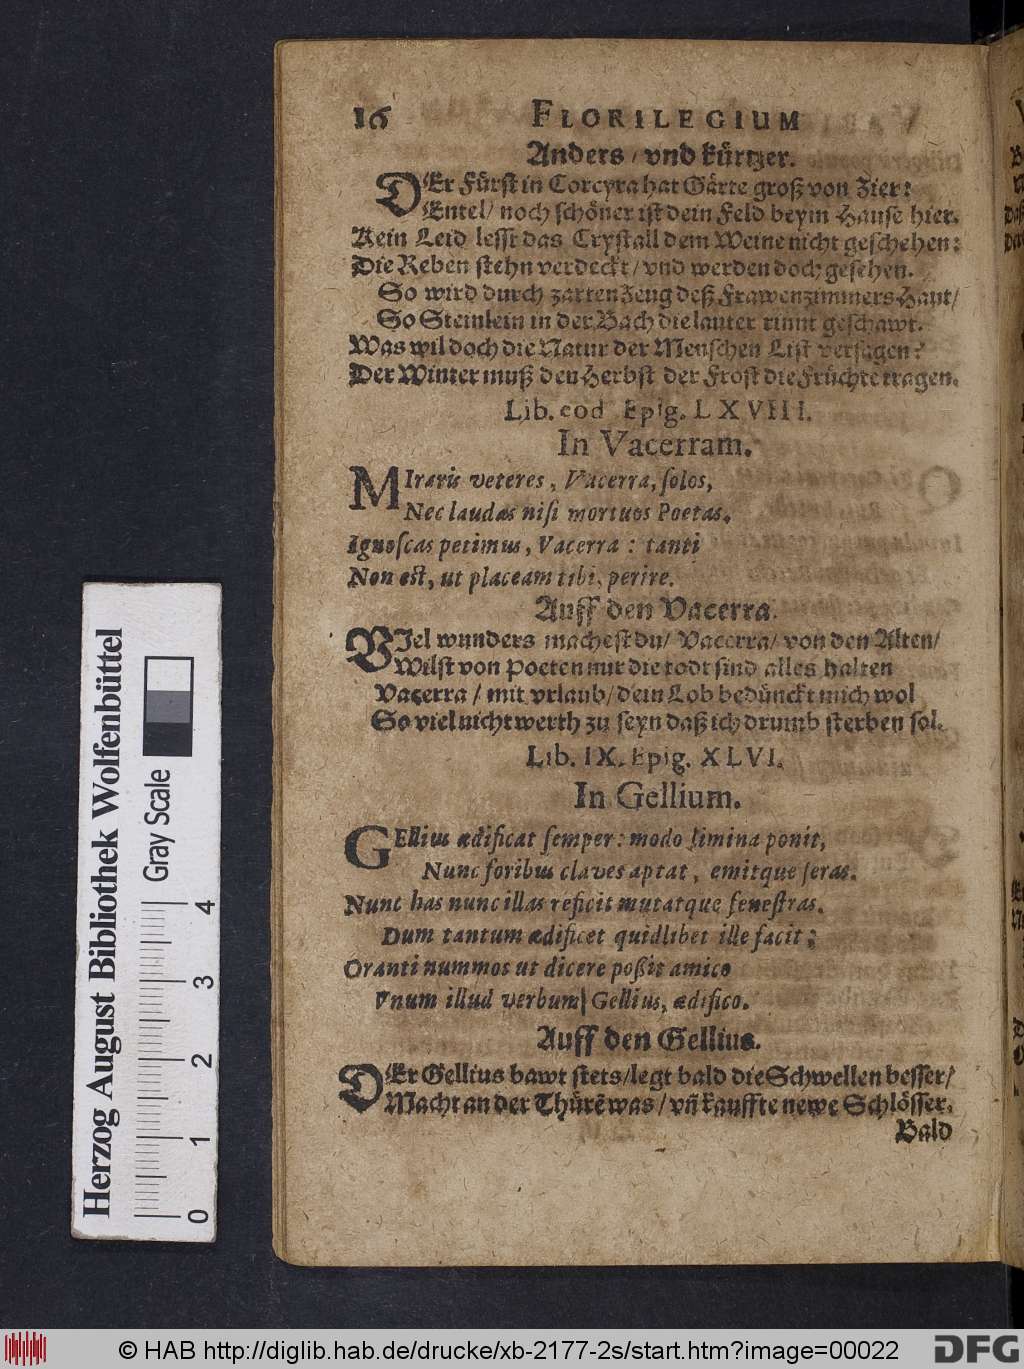 16 FLORILEGIUM
Anders / vnd kürtzer.
DEr Fürst in Corcyra hat Gärte groß von Zier:
Entel / noch schöner ist dein Feld beym Hause hier.
Kein Leid lesst das Crystall dem Weine nicht geschehen:
Die Reben stehn verdeckt / vnd werden doch gesehen.
So wird durch zarten Zeug deß Frawenzimmers Haut /
So Steinlein in der Bach die lauter rinnt geschawt.
Was wil doch die Natur der Menschen List versagen?
Der Winter muß den Herbst der Frost die Früchte tragen.
Lib. eod Epig. LXVIII.
In Vacerram.
MIraris veteres, Vacerra, solos,
Nec laudas nisi mortuos Poetas.
Ignoscas petimus, Vacerra: tanti
Non est, ut placeam tibi, perire.
Auff den Vacerra.
VIel wunders machest du / Vacerra / von den Alten /
Wilst von Poeten nur die todt sind alles halten
Vacerra / mit vrlaub / dein Lob bedünckt mich wol
So viel nicht werth zu seyn daß ich drumb sterben sol.
Lib. IX. Epig. XLVI.
In Gellium.
GEllius ædificat semper: modo limina ponit,
Nunc foribus claves aptat, emitque seras.
Nunc has nunc illas reficit mutatque fenestras.
Dum tantum ædificet quidlibet ille facit;
Oranti nummos ut dicere poßit amico
Vnum illud verbum Gellius, ædifico.
Auff den Gellius.
DEr Gellius bawt stets / legt bald die Schwellen besser /
Macht an der Thürē was / vñ kauffte newe Schlösser.
Bald
Herzog August Bibliothek Wolfenbüttel
Gray Scale
0 1 2 3 4
© HAB http://diglib.hab.de/drucke/xb-2177-2s/start.htm?image=00022
DFG